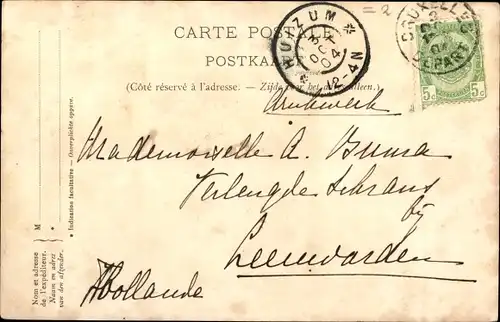 = 2
CARTE POSTALE
POSTKAART
(Côté réservé à l'adresse. — Zijde voor het adres alleen.)
HUIZUM
OCT
04
12-4N
BRUXELLES
DÉPART
5c 5c
Drukwerk
Mademoiselle A. Buma
Verlengde Schrans
bij
Leeuwarden
Hollande
• Indication facultative — Onverplichte opgave.
M
Nom et adresse
de l'expéditeur.
Naam en adres
van den afzender.